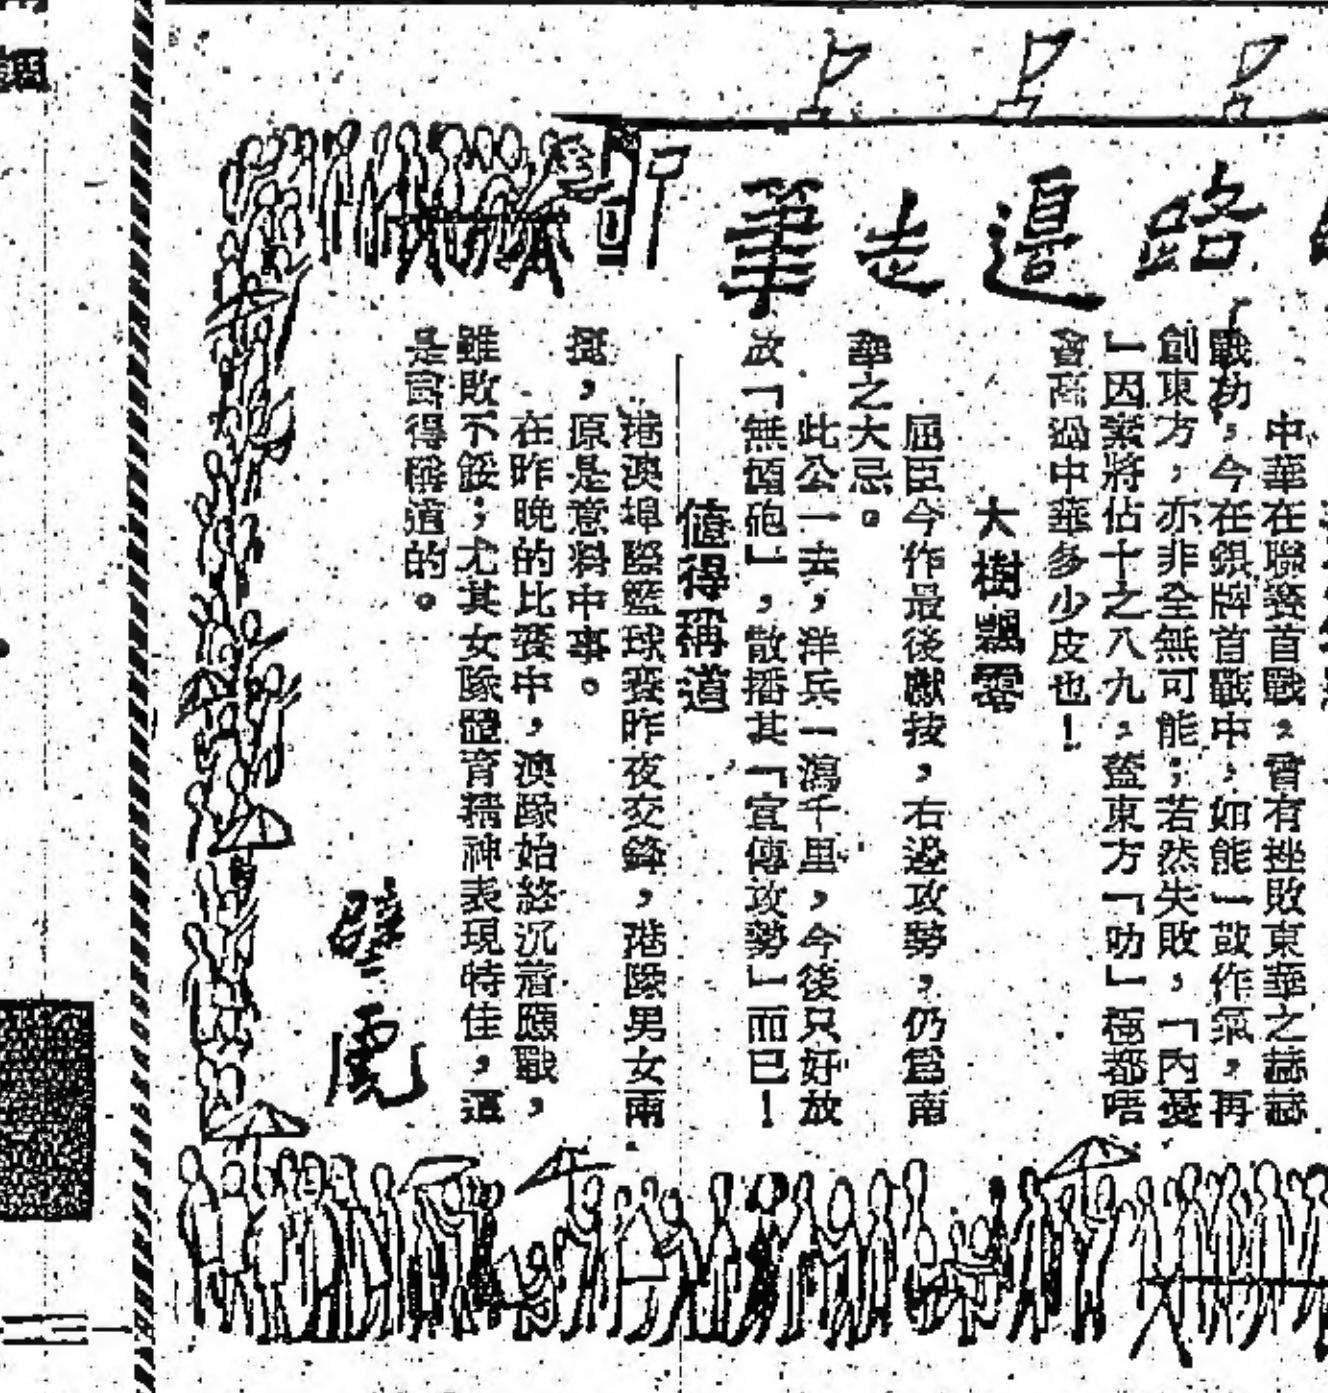 路邊走筆
中華在聯賽首戰，曾有挫敗東華之赫赫
戰功，今在銀牌首戰中，如能一鼓作氣，再
創東方，亦非全無可能；若然失敗，「內憂
」因素將佔十之八九，蓋東方「叻」極都唔
會高過中華多少皮也！
大樹飄零
屈臣今作最後獻技，右邊攻勢，仍爲南
華之大忌。
此公一去，洋兵一瀉千里，今後只好放
放「無頭砲」，散播其「宣傳攻勢」而已！
值得稱道
港澳埠際籃球賽昨夜交鋒，港隊男女兩
，原是意料中事。
在昨晚的比賽中，澳隊始終沉着應戰，
雖敗不餒；尤其女隊體育精神表現特佳，這
是值得稱道的。
壁虎